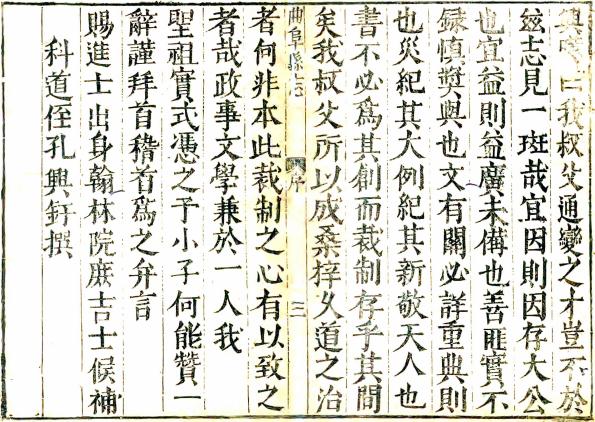 興嘆曰我叔父通變之才豈不於
玆志見一斑哉宜因則因存大公
也宜益則益廣未備也善匪實不
録慎奬與也文有關必詳重典則
也災紀其大例紀其新敬天人也
書不必爲其創而裁制存乎其間
矣我叔父所以成桑梓乂道之治
曲阜縣志
序
三
者何非本此裁制之心有以致之
者哉政事文學兼於一人我
聖祖實式憑之予小子何能贊一
辭謹拜首稽首爲之弁言
賜進士出身翰林院庶吉士候補
科道侄孔興釪撰